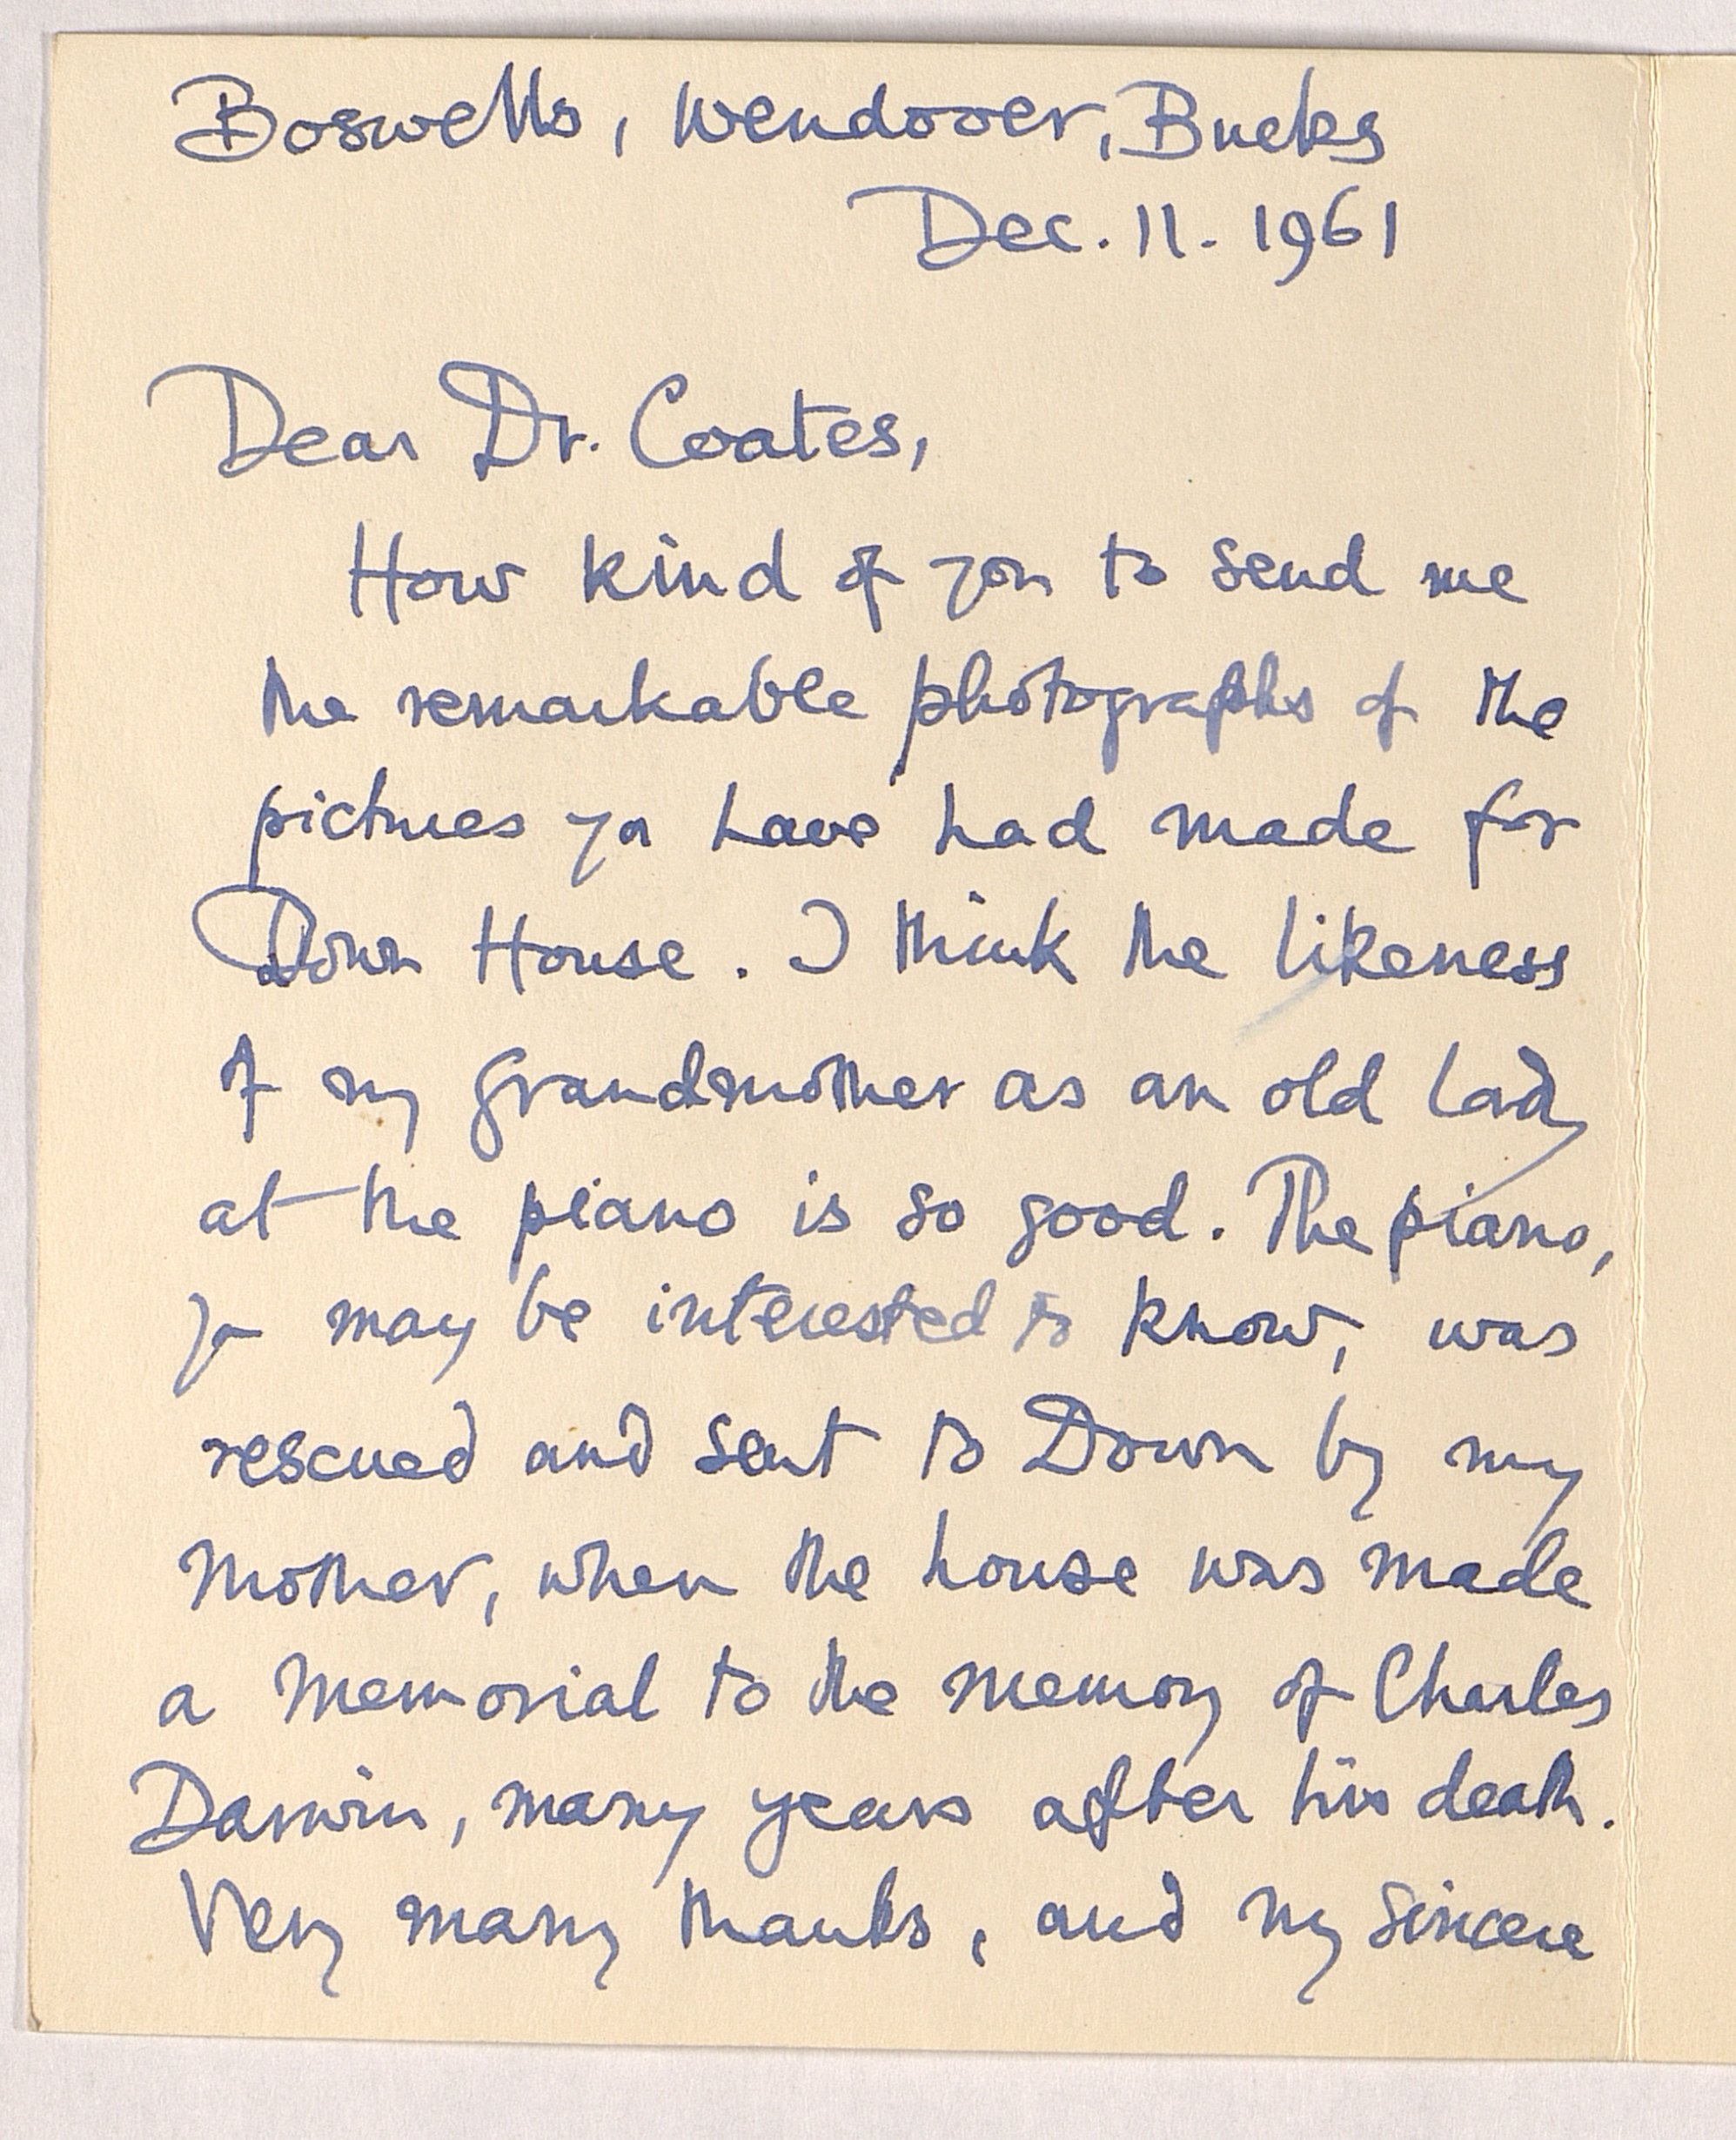 Boswells, Wendover, Bucks
Dec. 11. 1961
Dear Dr. Coates,
How kind of you to send me
the remarkable photographs of the
pictures you have had made for
Down House. I think the likeness
of my grandmother as an old lady
at the piano is so good. The piano,
you may be interested to know, was
rescued and sent to Down by my
mother, when the house was made
a memorial to the memory of Charles
Darwin, many years after his death.
Very many thanks, and my sincere